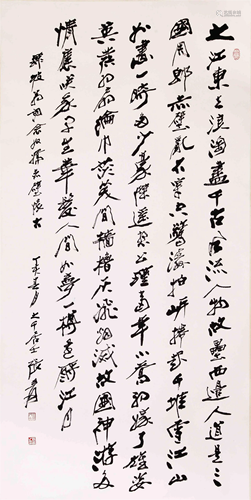 大江東去浪淘盡千古風流人物故壘西邊人道是三
國周郎赤壁亂石穿空驚濤拍岸捲起千堆雪江山
如畫一時多少豪傑遙想公瑾當年小喬初嫁了雄姿
英發羽扇綸巾談笑間檣櫓灰飛煙滅故國神遊多
情應笑我早生華髮人間如夢一樽還酹江月